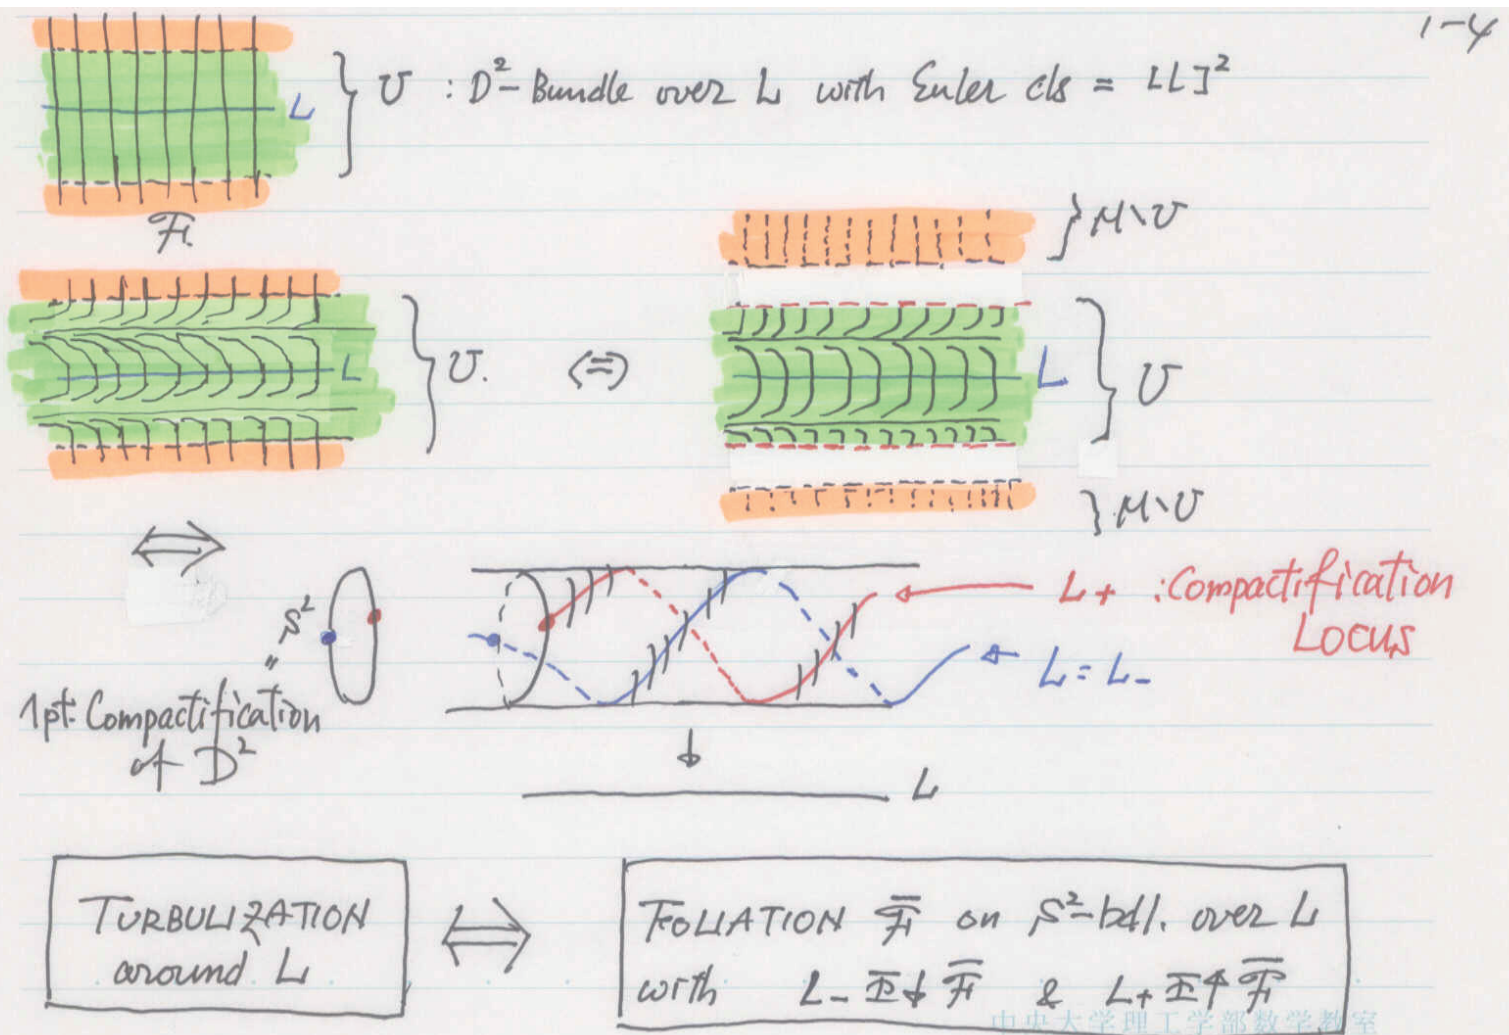 1-4
L
U : D²-Bundle over L with Euler cls = [L]²
F
M∖U
L
U.
⇔
L
U
M∖U
⇔
S²
L+ : Compactification
Locus
L = L-
1pt. Compactification
of D²
L
TURBULIZATION
around L
⇔
FOLIATION F̄ on S²-bdl. over L
with L- ⋔↓ F̄ & L+ ⋔↑ F̄
中央大学理工学部数学教室